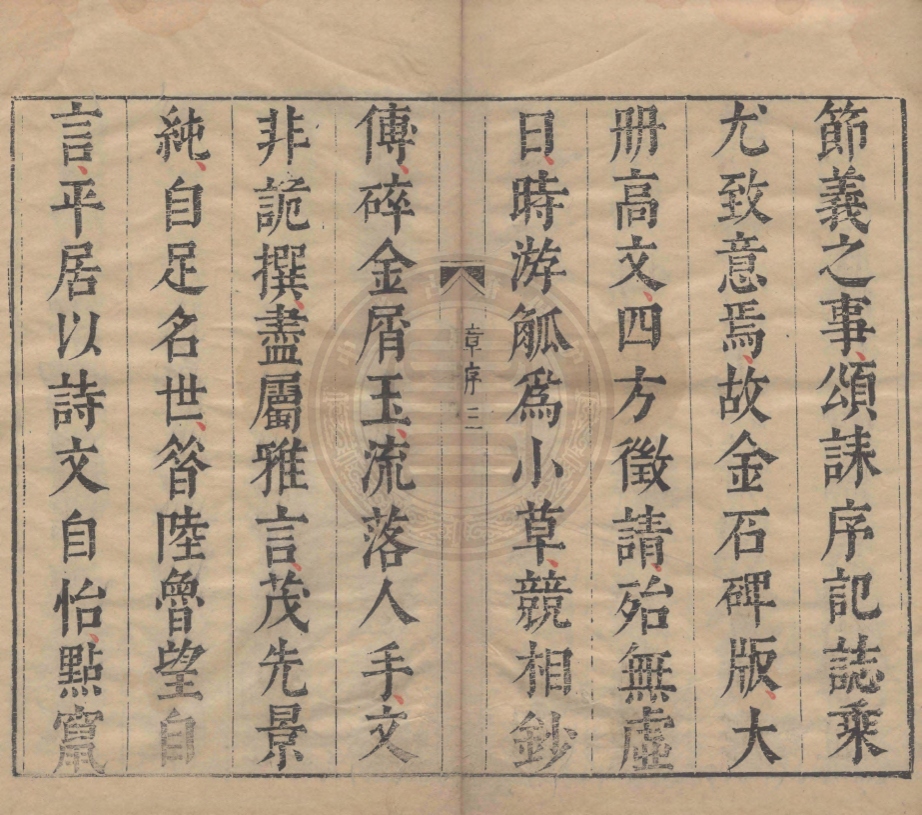 節義之事、頌誄序記誌乘
尤致意焉、故金石碑版、大
册高文、四方徵請、殆無虛
日、時游觚爲小草、競相鈔
章序 三
傳、碎金屑玉、流落人手、文
非詭撰、盡屬雅言、茂先景
純、自足名世、昝陸魯望自
言、平居以詩文自怡、點竄